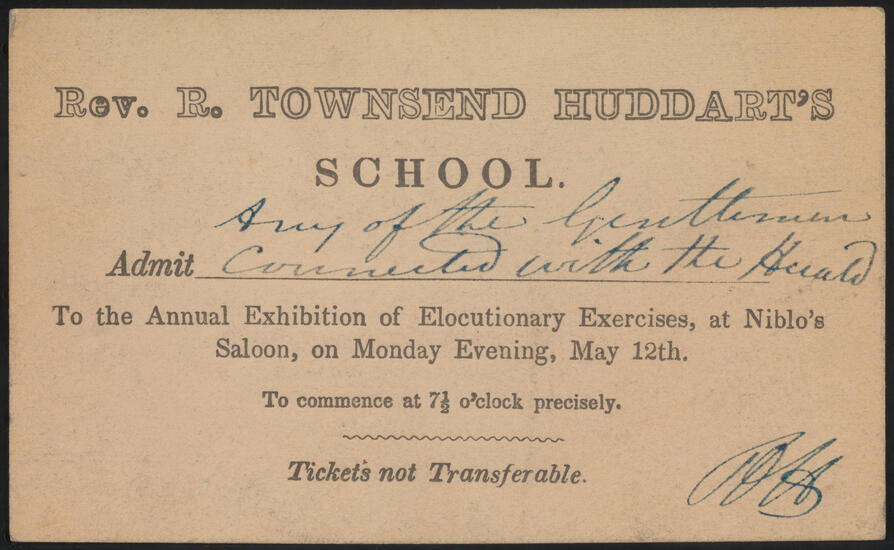 Rev. R. TOWNSEND HUDDART'S
SCHOOL.
Any of the Gentlemen
Admit connected with the Herald
To the Annual Exhibition of Elocutionary Exercises, at Niblo's
Saloon, on Monday Evening, May 12th.
To commence at 7½ o'clock precisely.
Tickets not Transferable.